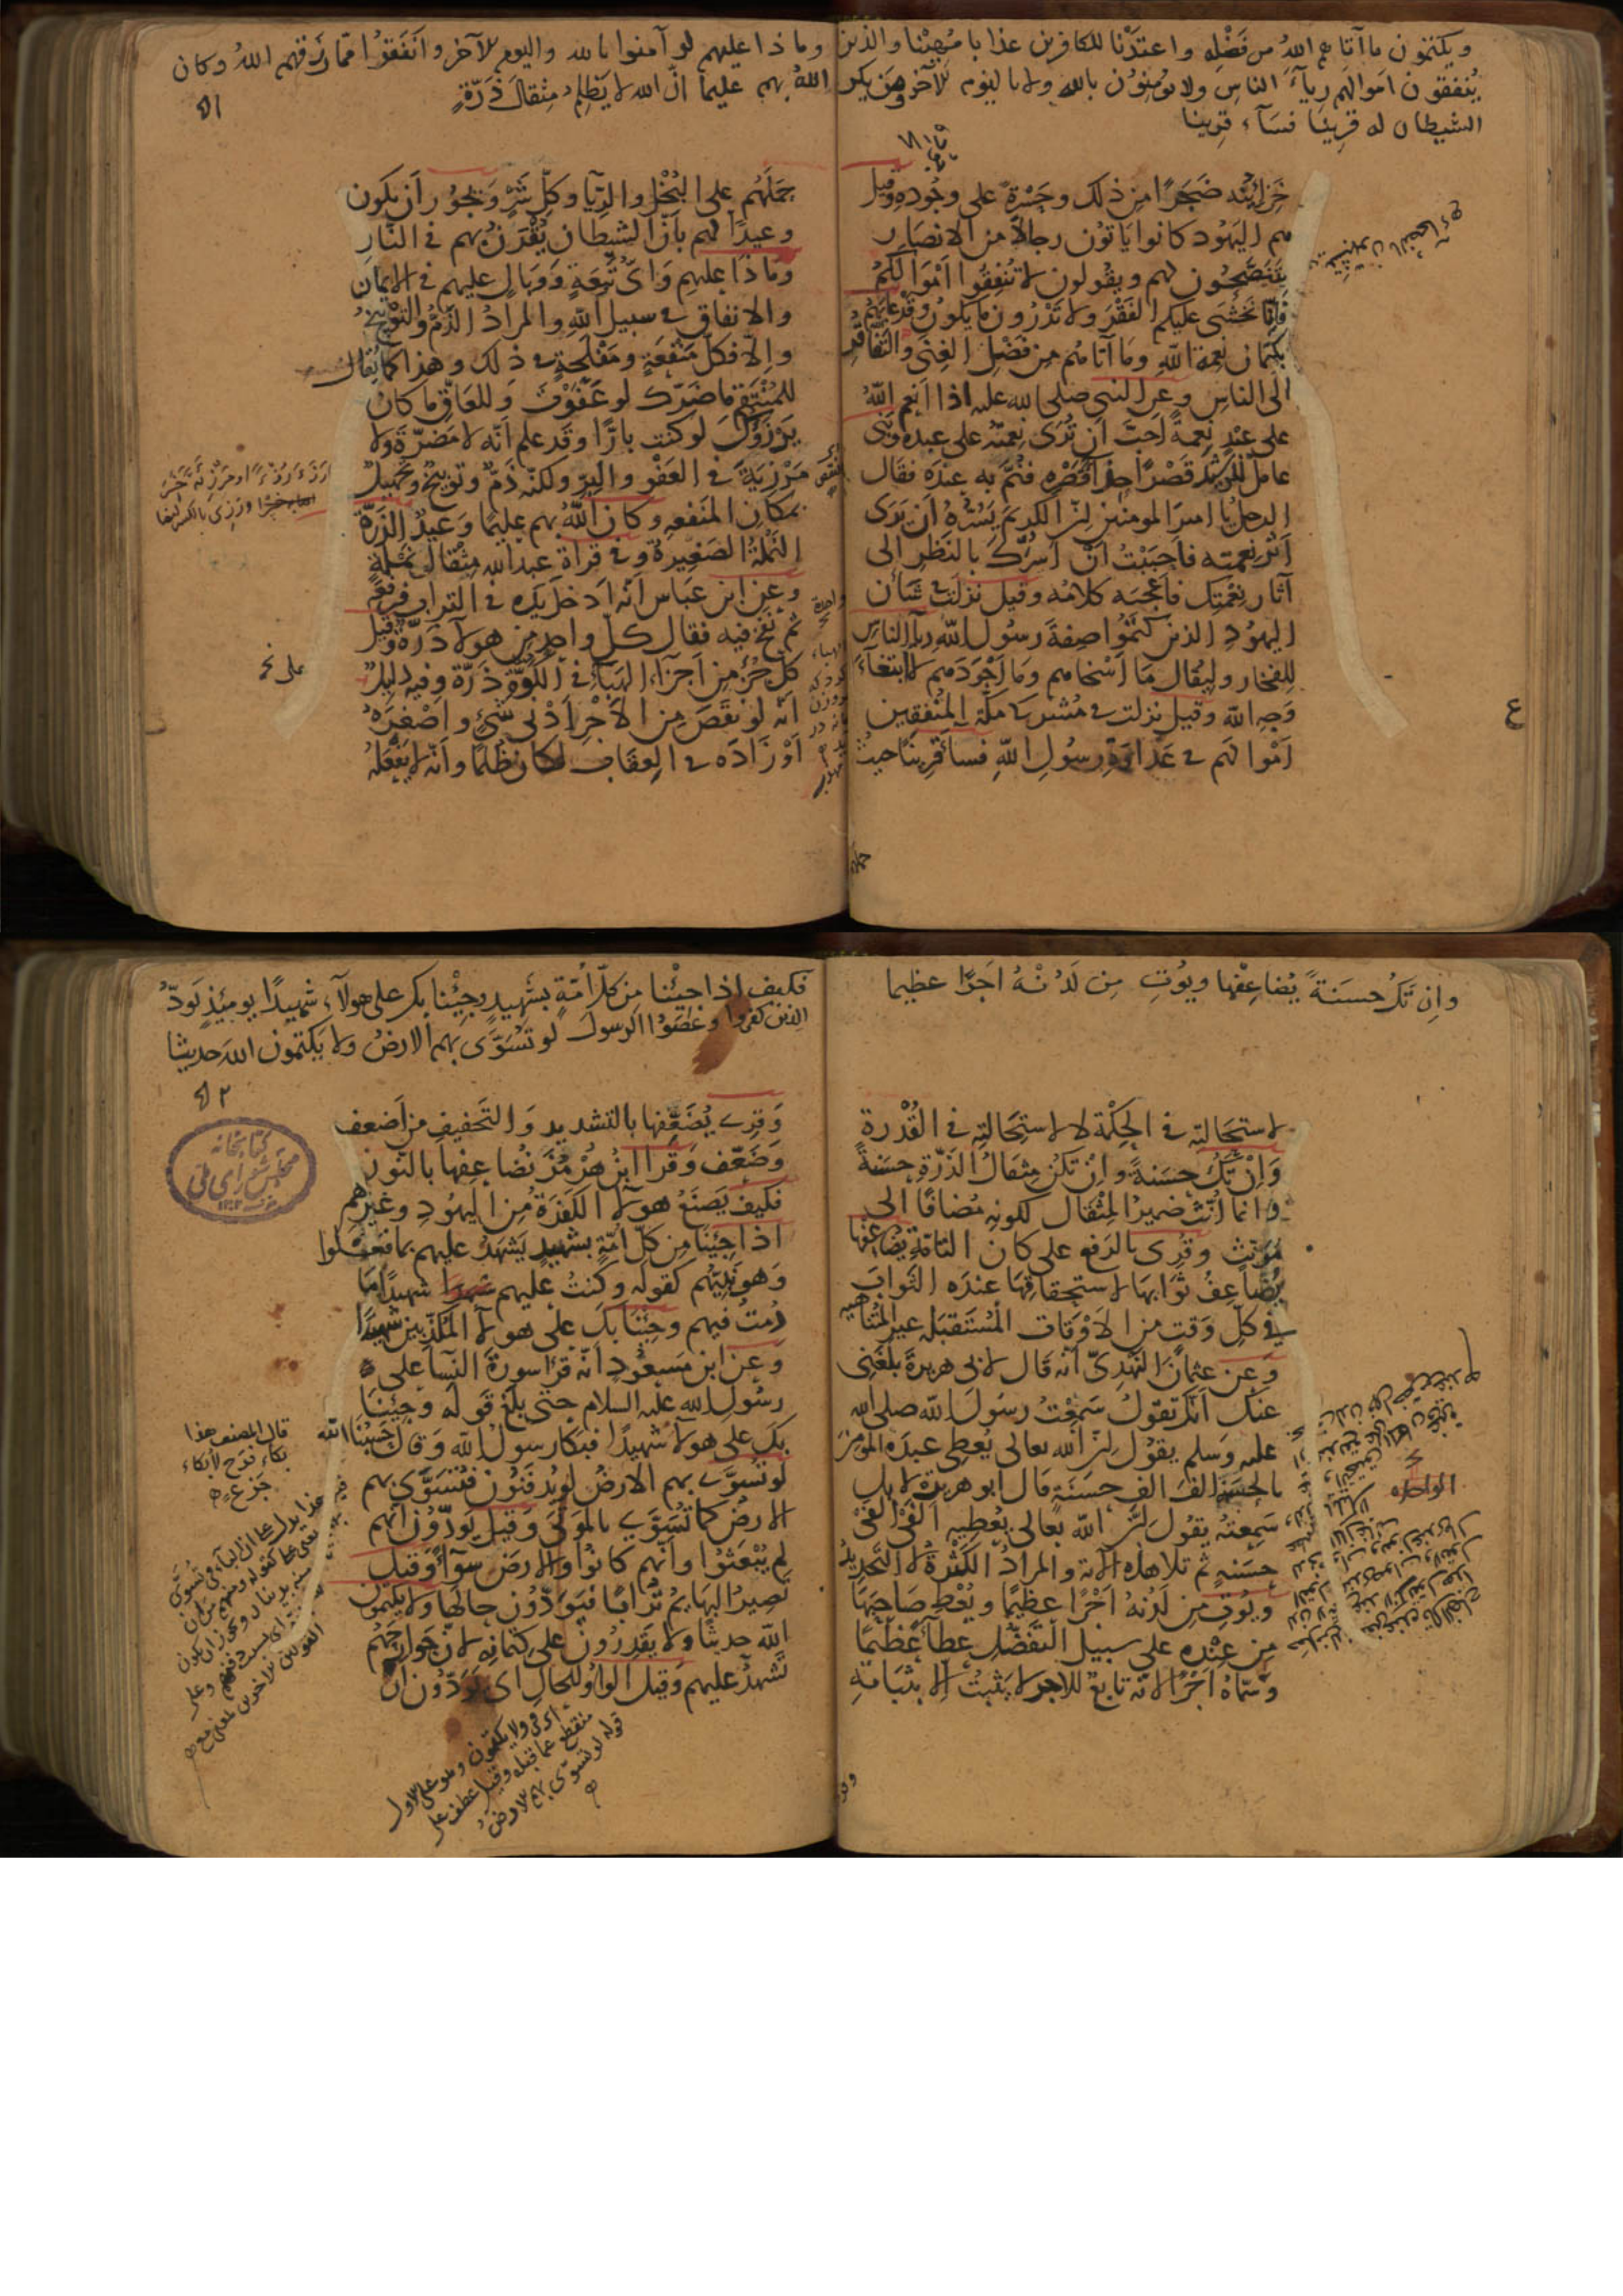 ويكتمون ما آتاهم الله من فضله واعتدنا للكافرين عذابا مهينا والذين
ينفقون اموالهم رياء الناس ولا يومنون بالله ولا باليوم الآخر ومن يكن
الشيطان له قرينا فسآء قرينا
خزائنه ضجرا من ذلك وحسرة على وجوده وقيل
هم اليهود كانوا ياتون رجالا من الانصار
يتنصحون لهم ويقولون لا تنفقوا اموالكم
فانا نخشى عليكم الفقر ولا تدرون ما يكون وقد عابهم
بكتمان نعمة الله وما آتاهم من فضل الغنى والتفاقر
الى الناس وعن النبي صلى الله عليه اذا انعم الله
على عبد نعمة احب ان ترى نعمته على عبده وبنى
عامل للرشيد قصرا حذاء قصره فنم به عنده فقال
الرجل يا امير المومنين ان الكريم يسره ان يرى
اثر نعمته فاحببت ان اسرك بالنظر الى
آثار نعمتك فاعجبه كلامه وقيل نزلت في شأن
اليهود الذين كتموا صفة رسول الله رياء الناس
للفخار وليقال ما اسخاهم وما اجودهم لا ابتغاء
وجه الله وقيل نزلت في مشركي مكة المنفقين
اموالهم في عداوة رسول الله فساء قرينا حيث
وما ذا عليهم لو آمنوا بالله واليوم الآخر وانفقوا مما رزقهم الله وكان
الله بهم عليما ان الله لا يظلم مثقال ذرة
حملهم على البخل والريا وكل شر ويجوز ان يكون
وعيدا لهم بان الشيطان يقرن بهم في النار
وما ذا عليهم واى تبعة ووبال عليهم في الايمان
والانفاق في سبيل الله والمراد الذم والتوبيخ
والا فكل منفعة ومفلحة في ذلك وهذا كما يقال
للمنتقم ما ضرك لو عفوت وللعاق ما كان
يرزؤك لو كنت بارا وقد علم انه لا مضرة ولا
مرزية في العفو والبر ولكنه ذم وتوبيخ وتجهيل
بمكان المنفعه وكان الله بهم عليما وعيد الذرة
النملة الصغيرة وفي قراة عبد الله مثقال نملة
وعن ابن عباس انه ادخل يده في التراب فرفعه
ثم نفخ فيه فقال كل واحد من هولآ ذرة وقيل
كل جزء من اجزآء الهبآء في الكوة ذرة وفيه دليل
انه لو نقص من الاجر ادنى شئ واصغره
او زاده في العقاب لكان ظلما وانه لا يفعله
وان تك حسنة يضاعفها ويوت من لدنه اجرا عظيما
لاستحالته في الحكمة لا لاستحالته في القدرة
وان تك حسنة وان تكن مثقال الذرة حسنة
وانما انث ضمير المثقال لكونه مضافا الى
مونث وقرى بالرفع على كان التامة يضاعفها
يضاعف ثوابها لاستحقاقها عنده الثواب
في كل وقت من الاوقات المستقبله غير المتناهيه
وعن عثمان النهدى انه قال لابي هريرة بلغني
عنك انك تقول سمعت رسول الله صلى الله
عليه وسلم يقول ان الله تعالى يعطى عبده المومن
بالحسنة الف الف حسنة قال ابو هريرة لا بل
سمعته يقول ان الله تعالى يعطيه الفى الف
حسنه ثم تلا هذه الآية والمراد الكثرة لا التحديد
ويوت من لدنه اجرا عظيما ويعط صاحبها
من عنده على سبيل التفضل عطآء عظيما
وسماه اجرا لانه تابع للاجر لا يثبت الا بثباته
فكيف اذا جئنا من كل امة بشهيد وجئنا بك على هولآء شهيدا يومئذ يود
الذين كفروا وعصوا الرسول لو تسوى بهم الارض ولا يكتمون الله حديثا
وقرى يضعفها بالتشديد والتخفيف من اضعف
وضعف وقرا ابن هرمز نضاعفها بالنون
فكيف يصنع هولآ الكفرة من اليهود وغيرهم
اذا جئنا من كل امة بشهيد يشهد عليهم بما فعلوا
وهو نبيهم كقوله وكنت عليهم شهيدا ما
دمت فيهم وجئنا بك على هولآ المكذبين شهيدا
وعن ابن مسعود انه قرا سورة النسآ على
رسول الله عليه السلام حتى بلغ قوله وجئنا
بك على هولآ شهيدا فبكا رسول الله وقال حسبنا الله
لو تسوى بهم الارض لو يدفنون فتسوى بهم
الارض كما تسوى بالموتى وقيل يودون انهم
لم يبعثوا وانهم كانوا والارض سوآء وقيل
تصير البهايم ترابا فيودون حالها ولا يكتمون
الله حديثا ولا يقدرون على كتمانه لان جوارحهم
تشهد عليهم وقيل الواو للحال اى يودون ان
قال المصنف هذا
بكاء فرح لا بكاء
جزع
كتابخانه
مجلس شوراى ملى